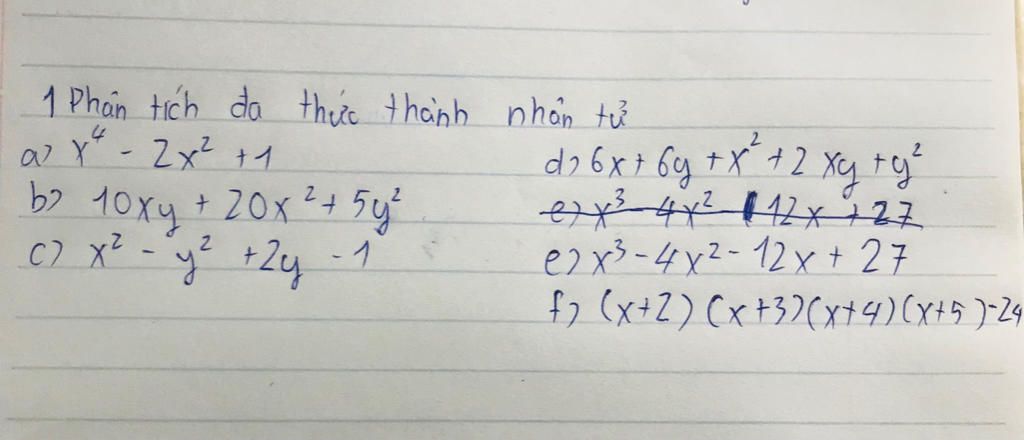 1 Phân tích đa thức thành nhân tử
a) x⁴ - 2x² + 1
b) 10xy + 20x² + 5y²
c) x² - y² + 2y - 1
d) 6x + 6y + x² + 2xy + y²
e) x³ - 4x² 12x + 27
e) x³ - 4x² - 12x + 27
f) (x+2) (x+3)(x+4)(x+5)-24